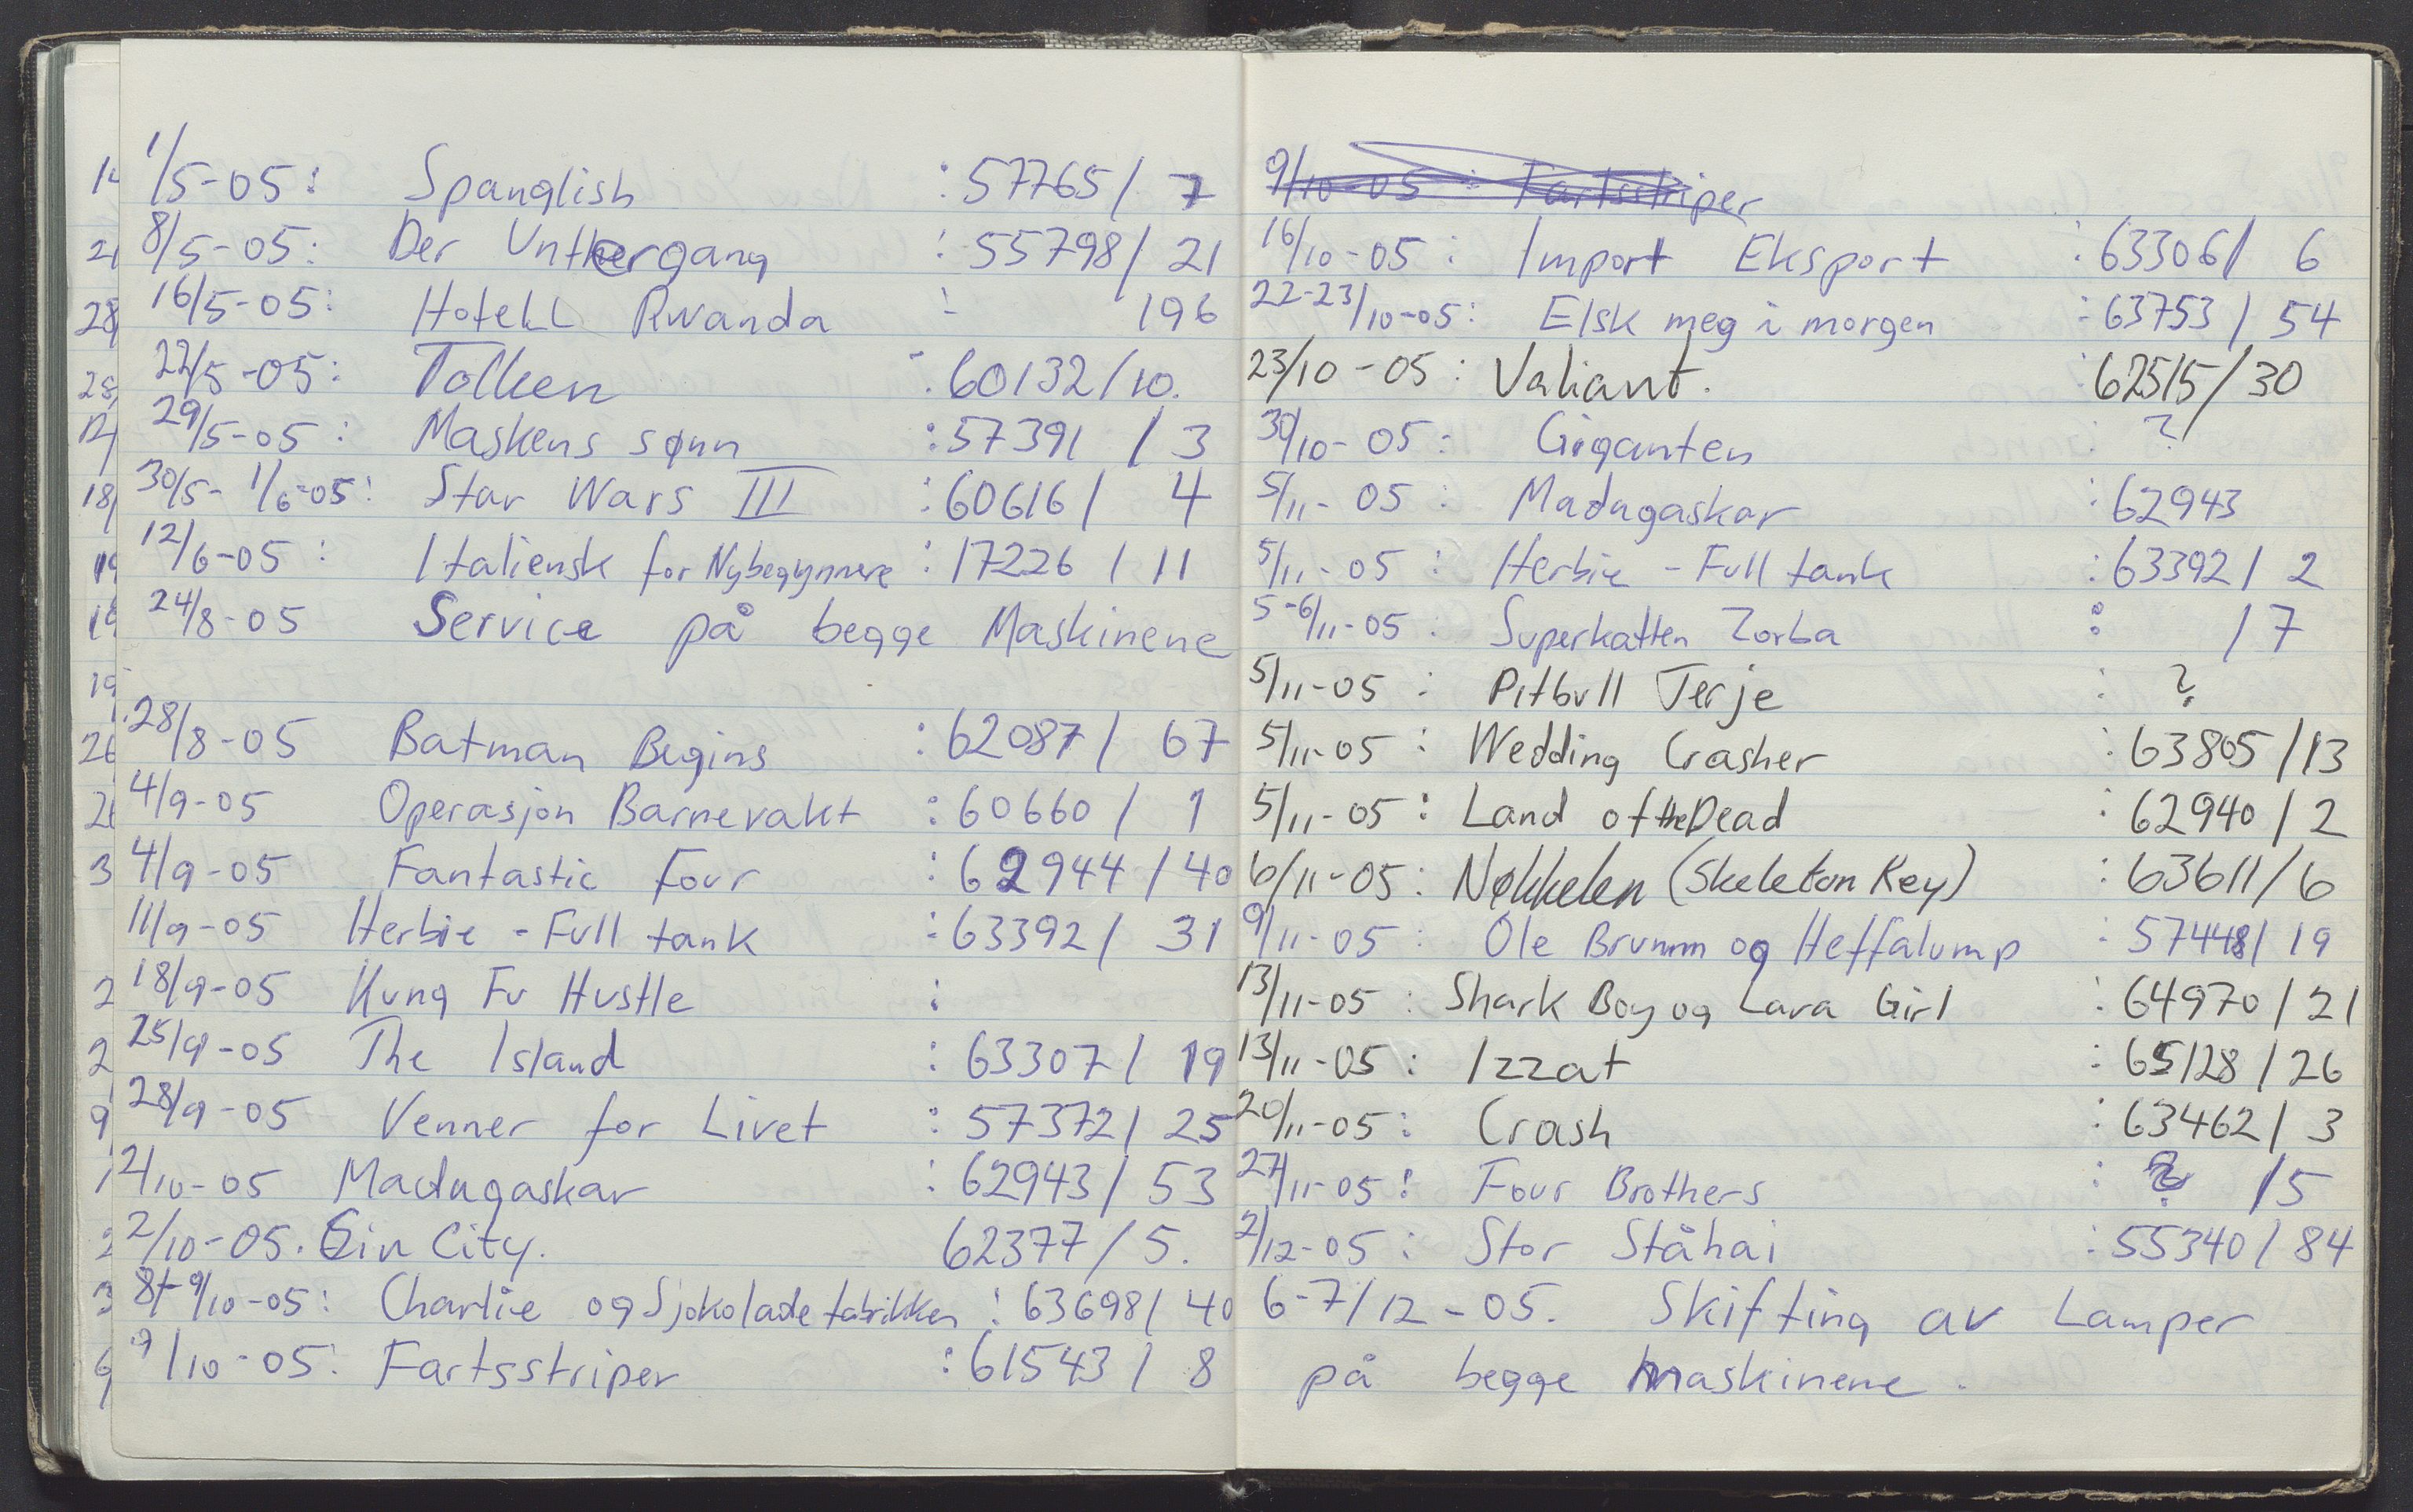 1/5-05: Spanglish : 57765/ 7
8/5-05: Der Unthergang : 55798/ 21
16/5-05: Hotell Rwanda : 196
22/5-05: Tolken : 60132/10.
29/5-05: Maskens sønn : 57391 / 3
30/5- 1/6-05: Star Wars III : 60616/ 4
12/6-05: Italiensk for Nybegynnere : 17226 / 11
24/8-05 Service på begge Maskinene
28/8-05 Batman Begins : 62087/ 67
4/9-05 Operasjon Barnevakt : 60660 / 1
4/9-05 Fantastic Four : 62944/40
11/9-05 Herbie - Full tank : 63392/ 31
18/9-05 Kung Fu Hustle :
25/9-05 The Island : 63307/ 19
28/9-05 Venner for Livet : 57372/ 25
2/10-05 Madagaskar : 62943/ 53
2/10-05. Sin City. 62377/5.
8/-9/10-05: Charlie og Sjokoladefabrikken : 63698/ 40
9/10-05: Fartsstriper : 61543/ 8
9/10-05 : Fartsstriper
16/10-05: Import Eksport : 63306/ 6
22-23/10-05: Elsk meg i morgen : 63753/ 54
23/10-05: Valiant. : 62515/30
30/10-05: Giganten : ?
5/11-05: Madagaskar : 62943
5/11-05: Herbie - Full tank : 63392/ 2
5-6/11-05: Superkatten Zorba : /7
5/11-05: Pitbull Terje : ?
5/11-05: Wedding Crasher : 63805/13
5/11-05: Land of the Dead : 62940/2
6/11-05: Nøkkelen (Skeleton Key) : 63611/6
9/11-05: Ole Brumm og Heffalump : 57448/ 19
13/11-05: Shark Boy og Lava Girl : 64970/21
13/11-05: Izzat : 65128/26
20/11-05: Crash : 63462/ 3
27/11-05: Four Brothers : ? /5
2/12-05: Stor Ståhai : 55340/ 84
6-7/12-05. Skifting av Lamper
på begge maskinene.